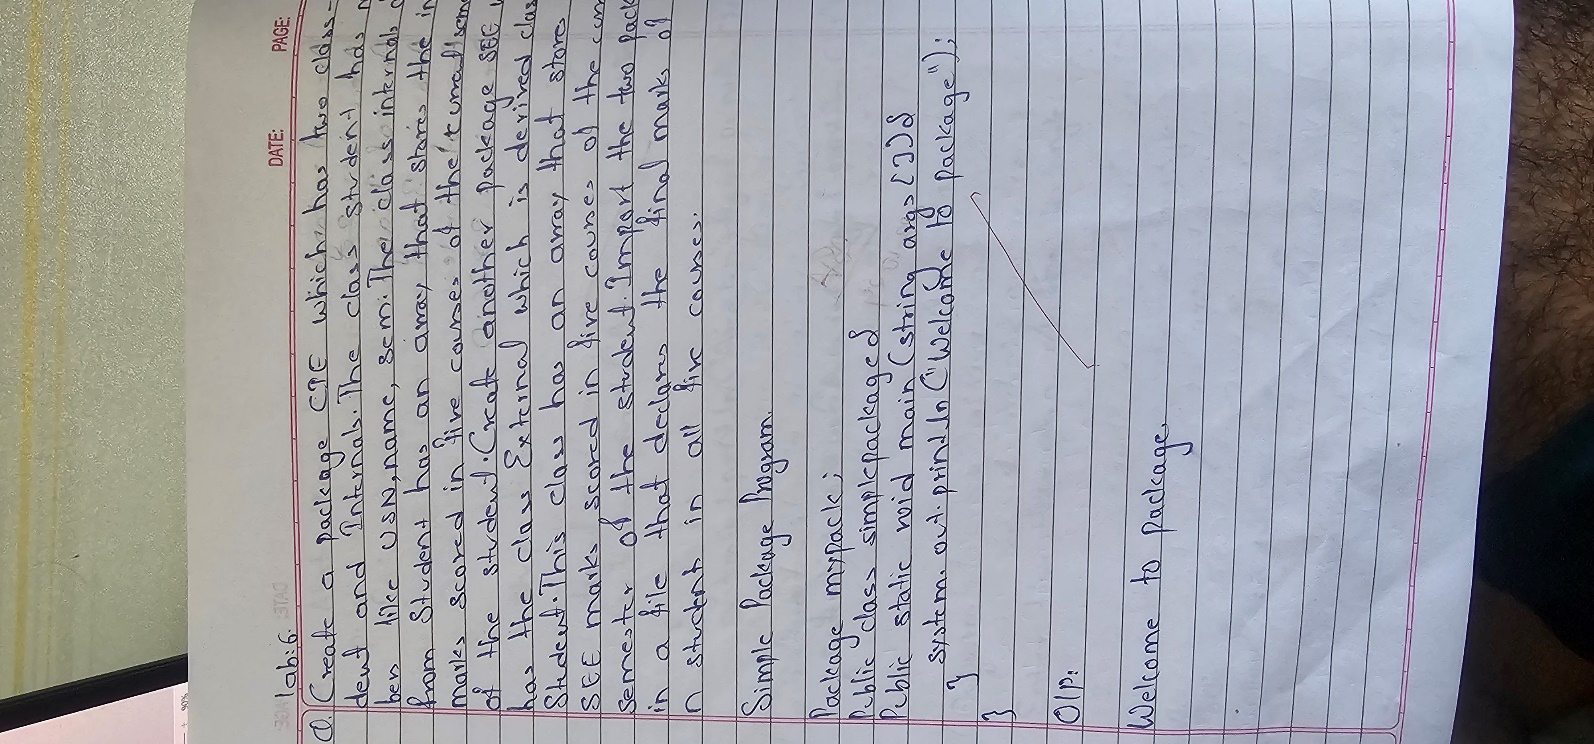 PAGE:
DATE:
Lab:6.
Q. Create a package CIE which has two class-
dent and Internals. The class student has
ber like USN, name, sem. The class internals
from Student has an array that stores the in
marks scored in five courses of the current sem
of the student. Create another package SEE
has the class External which is derived clas
Student. This class has an array that stores
SEE marks scored in five courses of the curr
semester of the student. Import the two pack
in a file that declares the final marks of
n student in all five courses.
Simple Package Program.
Package mypack;
Public class simplepackage{
Public static void main (string args [ ]){
system.out.println ("Welcome to package");
}
}
O/P:
Welcome to package.